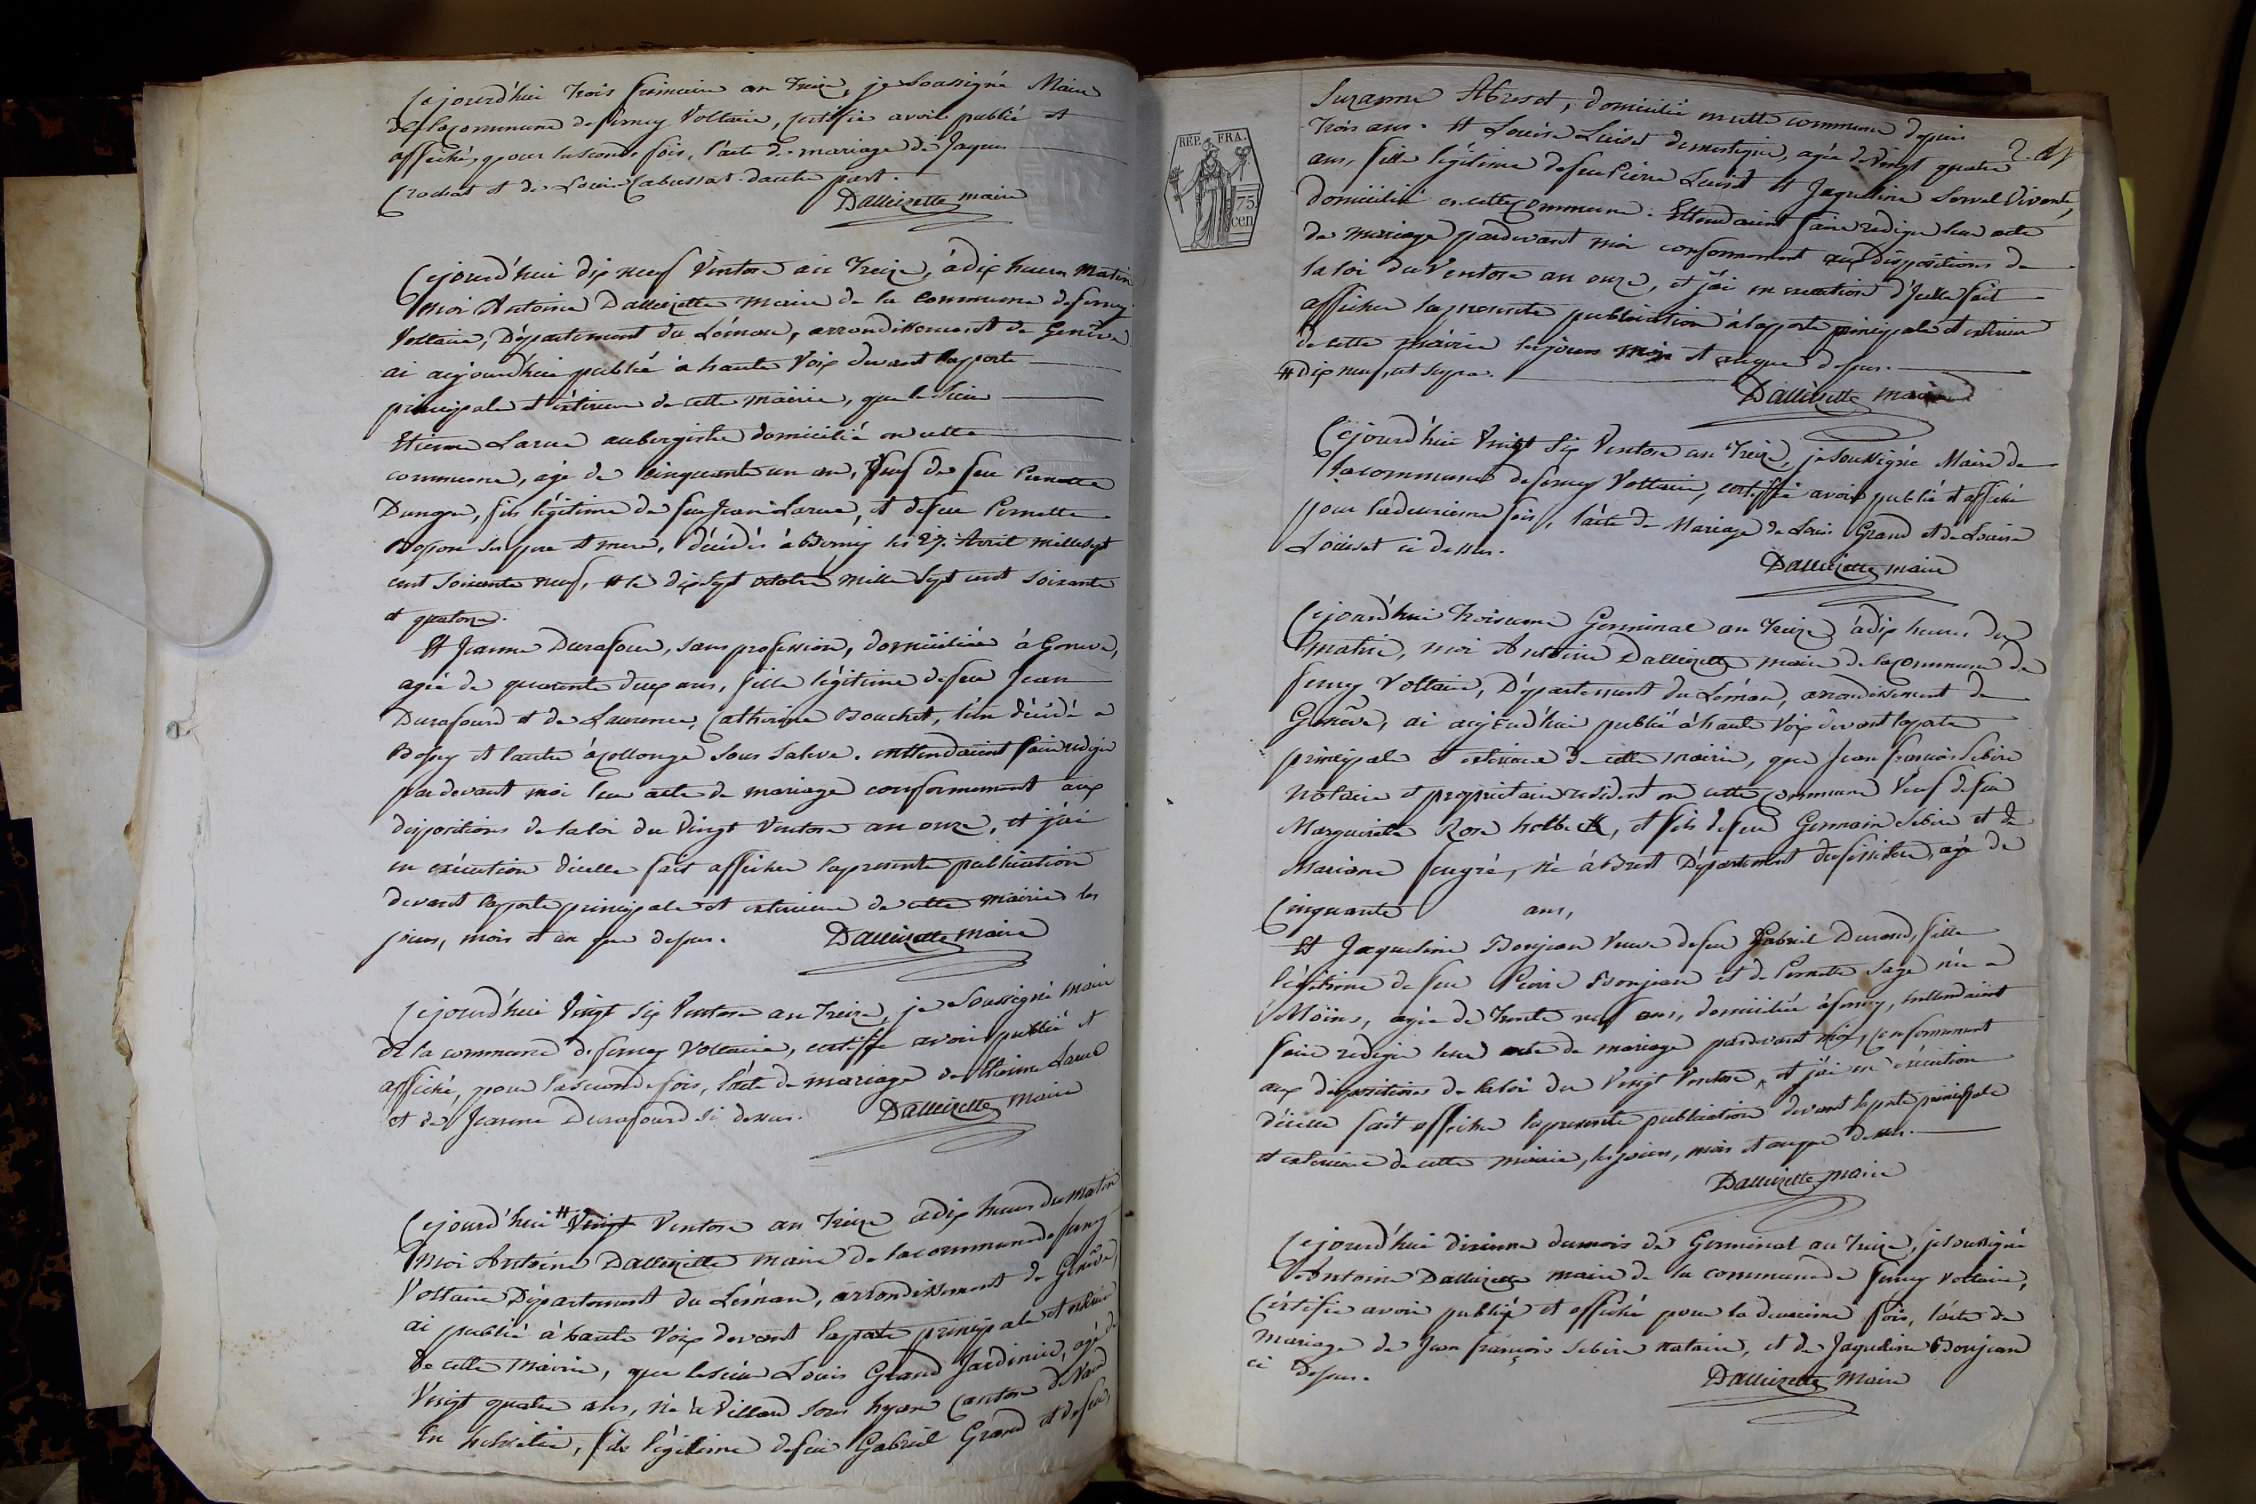 Cejourd'hui trois frimaire an treize, je soussigné Maire
de la commune de ferney Voltaire, certifie avoir publié et
affiché, pour la seconde fois, l'acte de mariage de Jaques
Crochat et de Louise Cabussat d'autre part.
Dallizette maire
Cejourd'hui dix neuf Ventose an treize, à dix heures Matin
Moi Antoine Dallizette maire de la commune de ferney
Voltaire, Département du Léman, arrondissement de Genève
ai aujourd'hui publié à haute Voix devant la porte
principale et extérieure de cette mairie, que le Sieur
Etienne Larue aubergiste domicilié en cette
commune, agé de cinquante un an, Veuf de feu Pernette
Dunque, fils légitime de feu Jean Larue, et de feue Pernette
Bosson ses pere et mere, décédés à Bernex les 27. Avril mille sept
cent soixante neuf, et le dix sept octobre mille sept cent soixante
et quatorze.
Et Jeanne Durafour, sans profession, domiciliée à Geneve,
agée de quarante deux ans, fille légitime de feu Jean
Durafourd et de Laurence Catherine Bouchet, l'un décédé a
Bossey et l'autre à Collonge sous Salève. entendaient faire rediger
par devant moi leur acte de mariage conformement aux
dispositions de la loi du Vingt Ventose an onze, et j'ai
en exécution d'icelle fait afficher la presente publication
devant la porte principale et exterieure de cette mairie les
jours, mois et an que dessus. Dallizette maire
Cejourd'hui Vingt Six Ventose an treize, je Soussigné maire
de la commune de ferney Voltaire, certifie avoir publié et
affiché, pour la seconde fois, l'acte de mariage de Etienne Larue
et de Jeanne Durafourd ci dessus. Dallizette maire
Cejourd'hui # Vingt Ventose an treize à dix heures du matin
Moi Antoine Dallizette maire de la commune de ferney
Voltaire Département du Léman, arrondissement de Genève,
ai publié à haute Voix devant la porte principale et exterieure
de cette Mairie, que le sieur Louis Grand Jardinier, agé de
Vingt quatre ans, né à Villard sous hyens Canton de Vaud
En helvetie, fils légitime de feu Gabriel Grand et de feue
2. D
REP. FRA.
75
cen
Suzanne , domicilié en cette commune depuis
trois ans. Et Louise Luiset domestique, agée de Vingt quatre
ans, fille légitime de feu Pierre Luiset et Jaqueline Vivante,
domiciliée en cette Commune. Entendaient faire rediger leur acte
de mariage pardevant moi conformement aux dispositions de
la loi du Ventose an onze, et j'ai en execution d'icelle fait
afficher la presente publication à la porte principale et exterieure
de cette mairie les jours mois et an que dessus.
# Dix neuf, ut supra.
Dallizette maire
Cejourd'hui Vingt Six Ventose an treize, je soussigné Maire de
la commune de ferney Voltaire, certifie avoir publié et affiché
pour la deuxieme fois, l'acte de Mariage de Louis Grand et de Louise
Loüiset ci dessus.
Dallizette maire
Cejourd'hui troisieme Germinal an treize à dix heures du
matin, moi Antoine Dallizette maire de la Commune de
ferney Voltaire, Département du Léman, arrondissement de
Genève, ai aujourd'hui publié à haute Voix devant la porte
principale et exterieure de cette mairie, que Jean françois Sebire
notaire et proprietaire residant en cette commune Veuf de feu
Marguerite Rose , et fils de feu Germain Sebire et de
Mariane , né à Brest Département du finistere, agé de
Cinquante ans,
Et Jaqueline Bonjean Veuve de feu Gabriel Durand, fille
légitime de feu Pierre Bonjean et de Pernette Sage née a
Moëns, agée de trente neuf ans, domiciliée à ferney, entendaient
faire rediger leur acte de mariage pardevant moi, conformement
aux dispositions de la loi du Vingt Ventose, et j'ai en exécution
d'icelle fait afficher la presente publication devant la porte principale
et exterieure de cette mairie, les jours, mois et an que dessus.
Dallizette maire
Cejourd'hui dixieme du mois de Germinal an treize, je soussigné
Antoine Dallizette maire de la commune de ferney Voltaire,
Certifie avoir publié et affiché pour la deuxieme fois, l'acte de
mariage de Jean françois Sebire notaire, et de Jaqueline Bonjean
ci dessus.
Dallizette maire